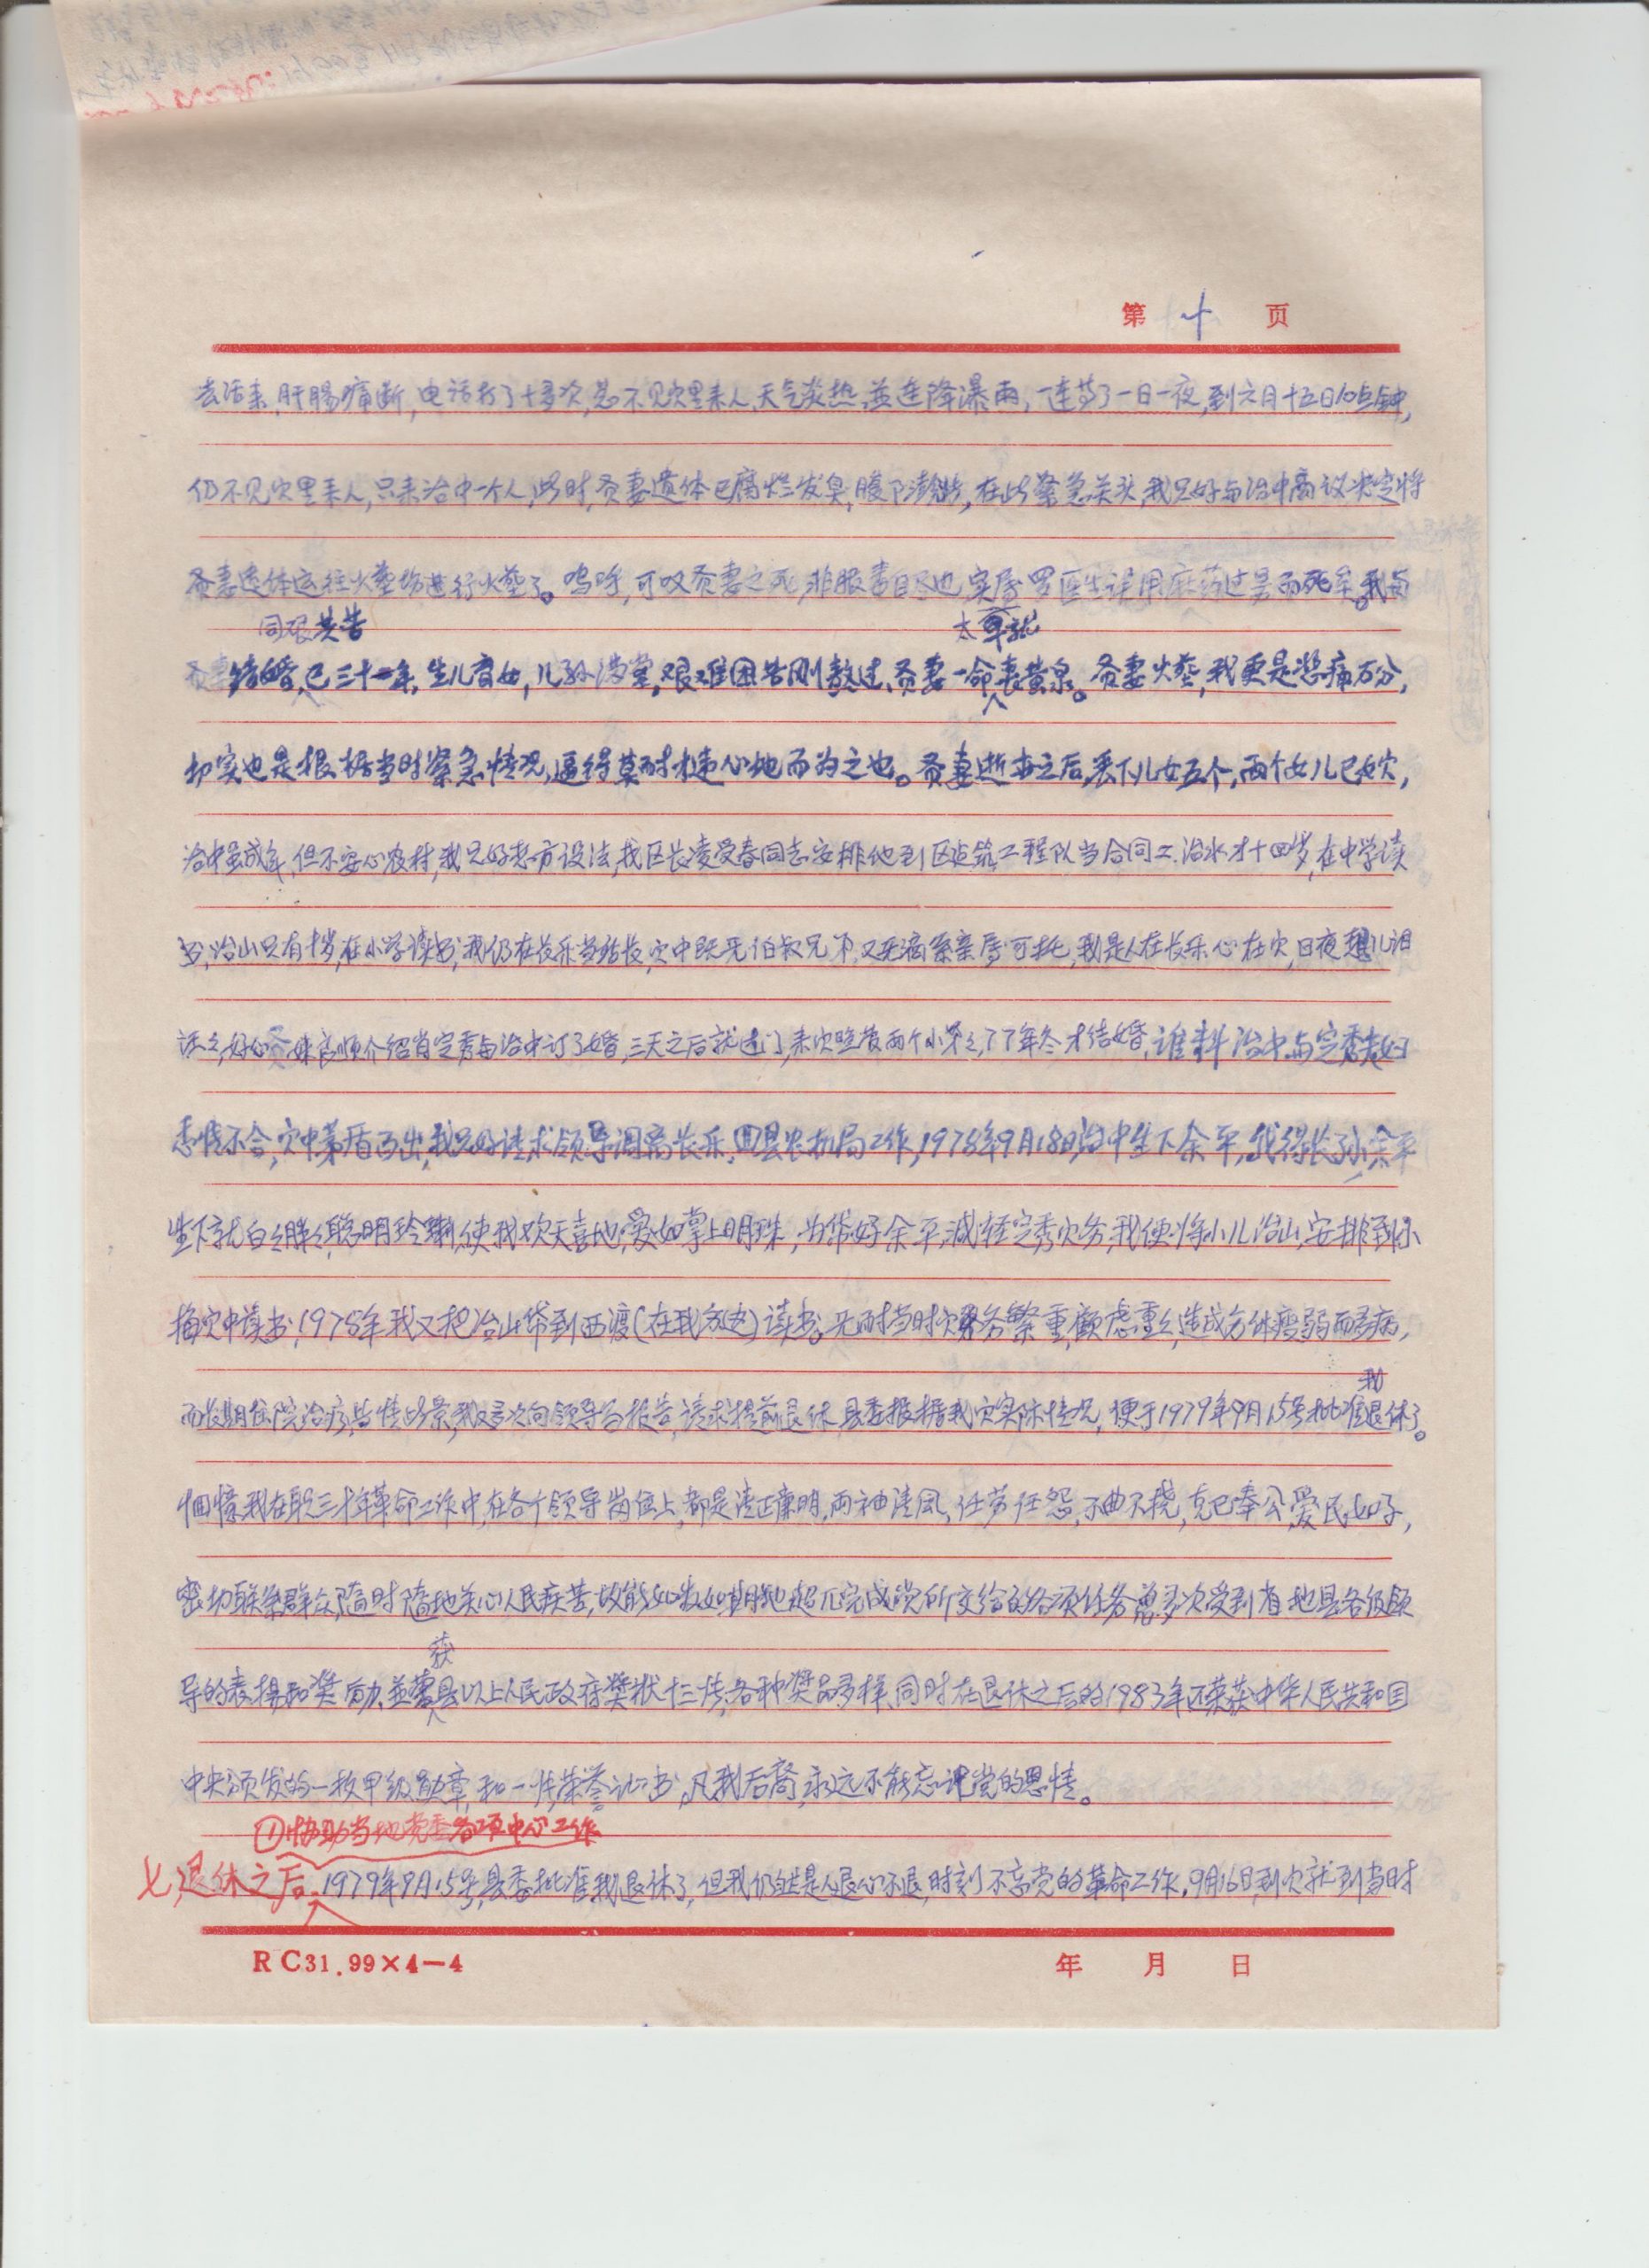 第 十 页
去活来,肝肠痛断,电话打了十多次,总不见家里来人,天气炎热,並连降瀑雨,一连等了一日一夜,到六月十五日10点钟,
仍不见家里来人,只来治中一个人,此时,贤妻遗体已腐烂发臭,腹下澎,在此紧急关头,我只好与治中商议决定将
贤妻遗体运往火塟场进行火塟了。呜呼,可叹贤妻之死,非服毒自尽也,实属罗医生误用麻药过量而死矣。我与
同艰共苦 太早就
贤妻结婚,已三十一年,生儿育女,儿孙满堂,艰难困苦刚熬过,贤妻一命丧黄泉。贤妻火塟,我更是悲痛万分,
切实也是根据当时紧急情况,逼得莫耐才违心地而为之也。贤妻逝世之后,丢下儿女五个,两个女儿已嫁,
治中虽成年,但不安心农村,我只好想方设法,找区长凌受春同志安排他到区建筑工程队当合同工,治水才十四岁,在中学读
书,治山只有十岁,在小学读书,我仍在长乐当站长,家中既无伯叔兄弟,又无嫡系亲房可托,我是人在长乐心在家,日夜想儿泪
涟涟,好心贤妹良顺介绍肖定秀与治中订了婚,三天之后就进门,来家照看两个小弟,77年冬才结婚,谁料治中与定秀夫妇
感情不合,家中茅盾百出,我只好请求领导调离长乐,回县农机局工作,1978年9月18日治中生下余平,我得长孙,余平
生下就白白胖胖,聪明玲琍,使我欢天喜地,爱如掌上明珠,为带好余平,减轻定秀家务,我便将小儿治山,安排到小
梅家中读书,1978年我又把治山带到西渡(在我身边)读书。无耐当时家务繁重,顾虑重重,造成身体瘦弱而多病,
我
而长期住院治疗,当情此景,我多次向领导写报告,请求提前退休,县委根据我家实际情况,便于1979年9月15号批准退休了。
回憶我在职三十年革命工作中,在各个领导岗位上,都是清正廉明,两袖清风,任劳任怨,不曲不挠,克己奉公,爱民如子,
密切联系群众,随时随地关心人民疾苦,故能如数如期地超几完成党所交给的各项任务,曾多次受到省地县各级领
获
导的表揚和奖励,並县以上人民政府奖状十三张,各种奖品多样,同时在退休之后的1983年还荣获中华人民共和国
中央颁发的一枚甲级勋章,和一张荣誉证书,凡我后裔,永远不能忘记党的恩情。
①协助当地党委各项中心工作
七,退休之后,1979年9月15号,县委批准我退休了,但我仍然是人退心不退,时刻不忘党的革命工作,9月16日到家就到当时
RC31.99×4-4 年 月 日